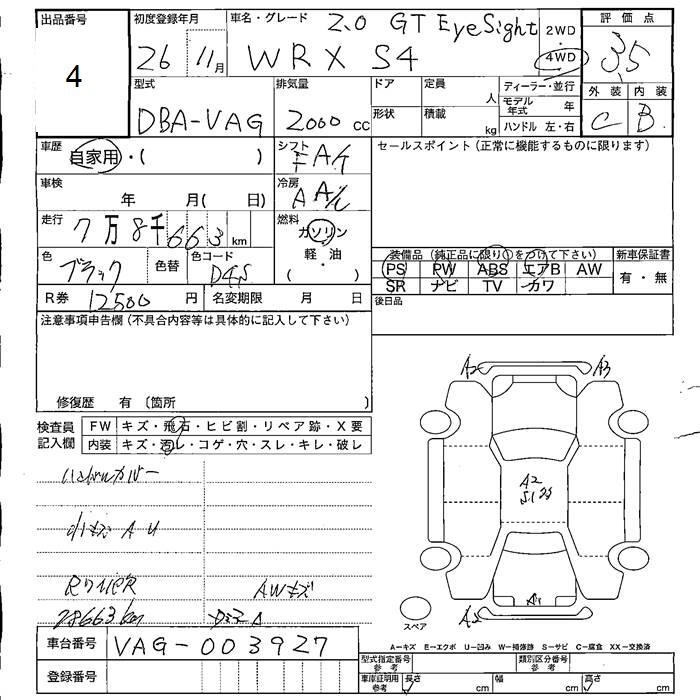 出品番号
4
初度登録年月
26 11月
車名・グレード 2.0 GT EyeSight
WRX S4
2WD
・
4WD
評価点
3.5
型式
DBA-VAG
排気量
2000 cc
ドア
形状
定員 人
積載 kg
ディーラー・並行
モデル年式 年
ハンドル 左・右
外装 内装
C B
車歴
自家用・( )
シフト
F A/T
セールスポイント (正常に機能するものに限ります)
車検 年 月( 日)
冷房
A A/C
走行 7万8千663km
燃料
ガソリン
軽・油
( )
色
ブラック
色替
色コード
D4S
装備品 (純正品に限り○をつけて下さい)
新車保証書
PS PW ABS エアB AW
有・無
SR ナビ TV カワ
R券 12500円
名変期限 月 日
後日品
注意事項申告欄 (不具合内容等は具体的に記入して下さい)
修復歴 有 〔箇所 〕
検査員
記入欄
FW キズ・飛石・ヒビ割・リペア跡・X要
内装 キズ・汚レ・コゲ・穴・スレ・キレ・破レ
A2 A3
A2
ハンドルカバー
小キズ A U
AWキズ
78663km
スペア
車台番号 VAG-003927
登録番号
A−キズ E−エクボ U−凹み W−補修跡 S−サビ C−腐食 XX−交換済
型式指定番号
参考
類別区分番号
参考
車庫証明用
参考
長さ cm 幅 cm 高さ cm